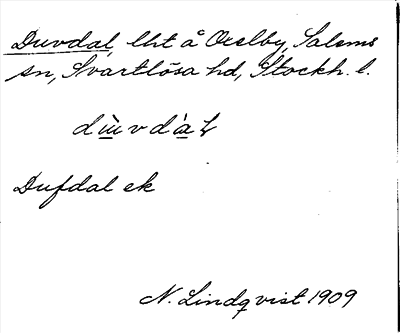 Duvdal, lht å Oxelby, Salems
sn, Svartlösa hd, Stockh. l.
Dufdal ek
N. Lindqvist 1909